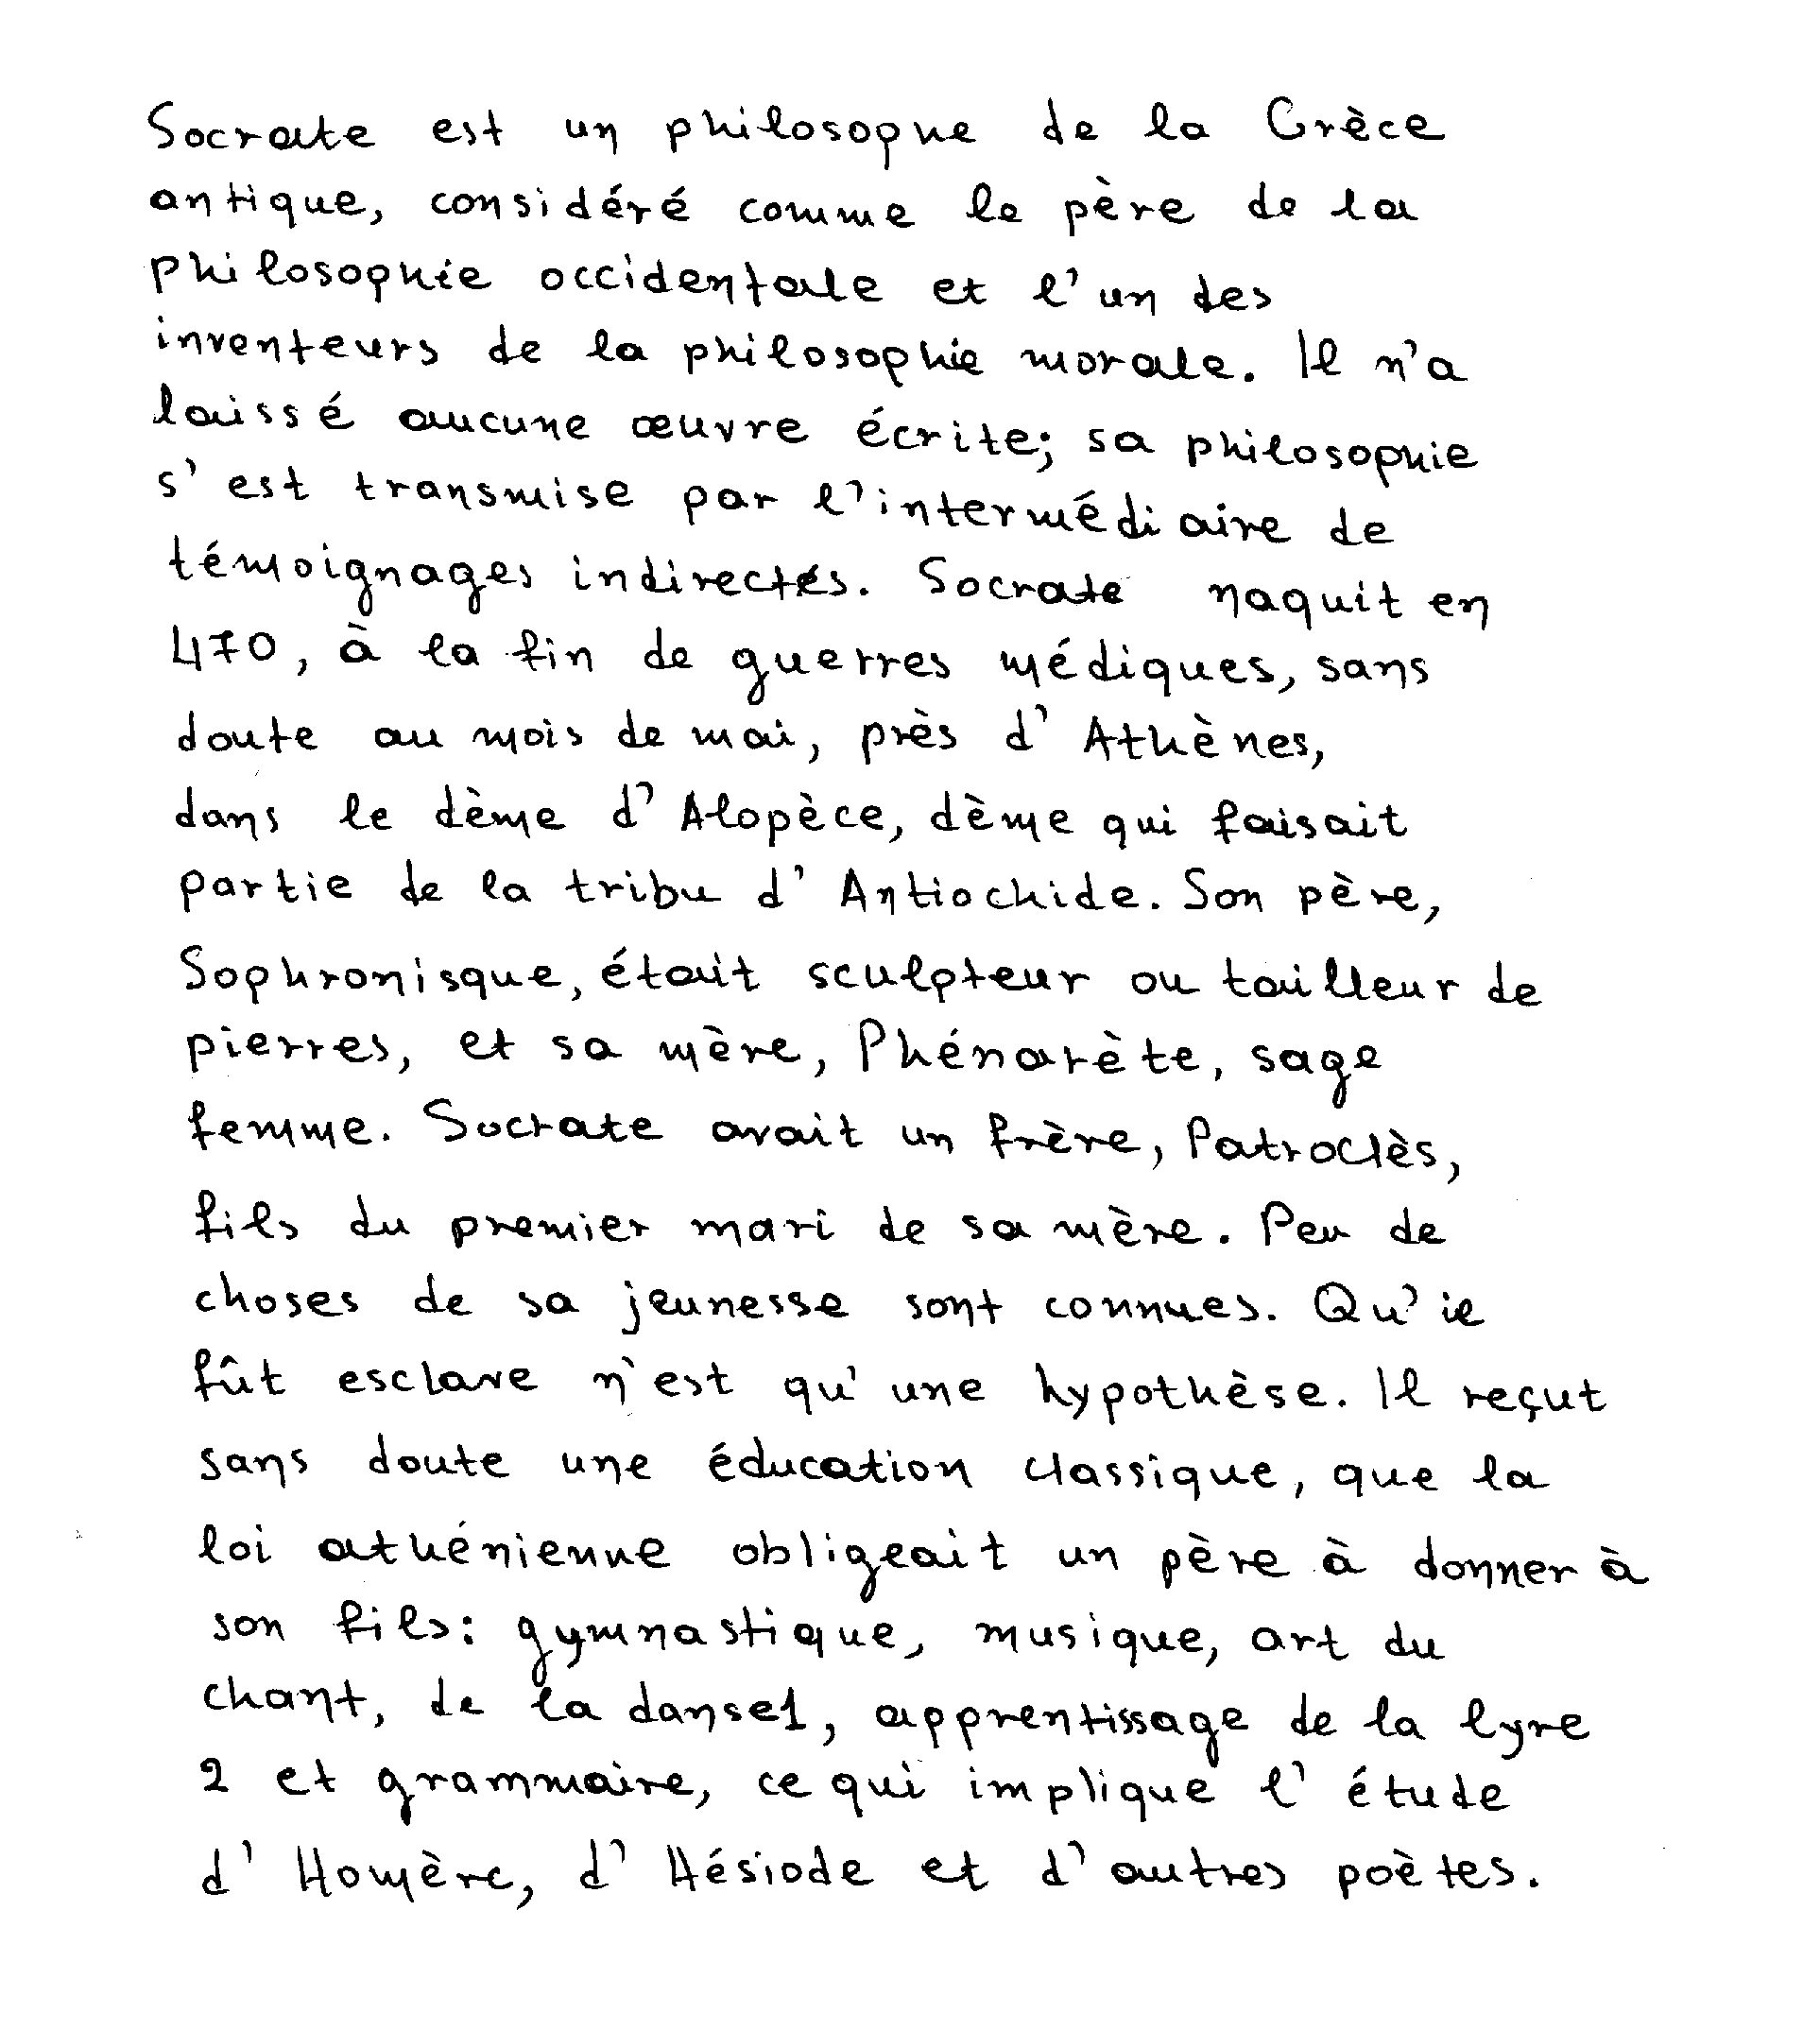 Socrate est un philosophe de la Grèce
antique, considéré comme le père de la
philosophie occidentale et l'un des
inventeurs de la philosophie morale. Il n'a
laissé aucune œuvre écrite; sa philosophie
s'est transmise par l'intermédiaire de
témoignages indirectes. Socrate naquit en
470, à la fin de guerres médiques, sans
doute au mois de mai, près d'Athènes,
dans le dème d'Alopèce, dème qui faisait
partie de la tribu d'Antiochide. Son père,
Sophronisque, était sculpteur ou tailleur de
pierres, et sa mère, Phénarète, sage
femme. Socrate avait un frère, Patroclès,
fils du premier mari de sa mère. Peu de
choses de sa jeunesse sont connues. Qu'il
fût esclave n'est qu'une hypothèse. Il reçut
sans doute une éducation classique, que la
loi athénienne obligeait un père à donner à
son fils: gymnastique, musique, art du
chant, de la danse1, apprentissage de la lyre
2 et grammaire, ce qui implique l'étude
d'Homère, d'Hésiode et d'autres poètes.